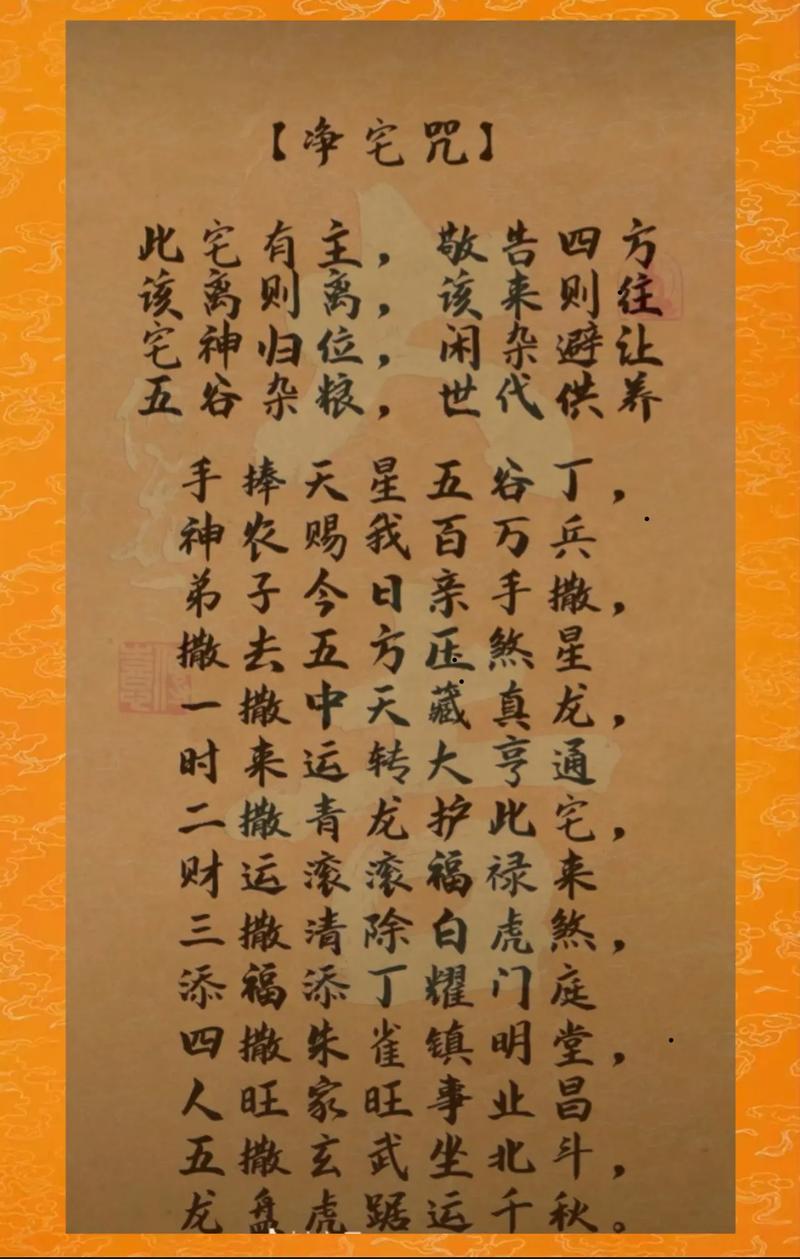 【净宅咒】
此宅有主，敬告四方
该离则离，该来则往
宅神归位，闲杂避让
五谷杂粮，世代供养
手捧天星五谷丁，
神农赐我百万兵
弟子今日亲手撒，
撒去五方压煞星
一撒中天藏真龙，
时来运转大亨通
二撒青龙护此宅，
财运滚滚福禄来
三撒清除白虎煞，
添福添丁耀门庭
四撒朱雀镇明堂，
人旺家旺事业昌
五撒玄武坐北斗，
龙盘虎踞运千秋。